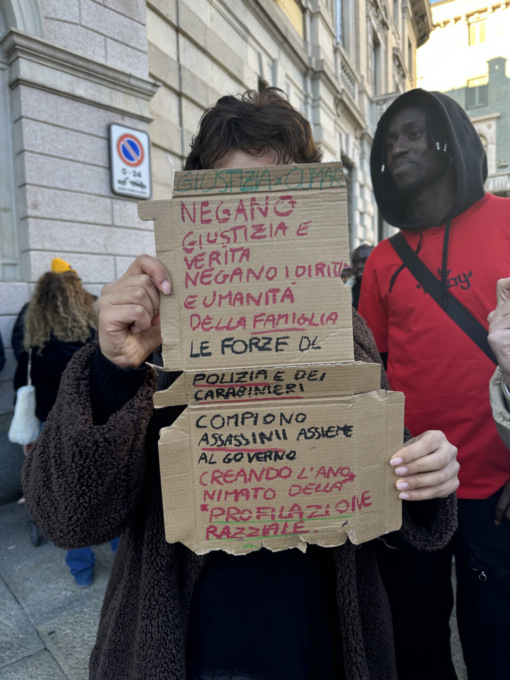 0-24
GIUSTIZIA x OUMAR
NEGANO
GIUSTIZIA E
VERITA
NEGANO I DIRITTI
E UMANITÀ
DELLA FAMIGLIA
LE FORZE DI
POLIZIA E DEI
CARABINIERI
COMPIONO
ASSASSINII ASSIEME
AL GOVERNO
CREANDO L'ANO*
*NIMATO DELLA*
*PROFILAZIONE
RAZZIALE.